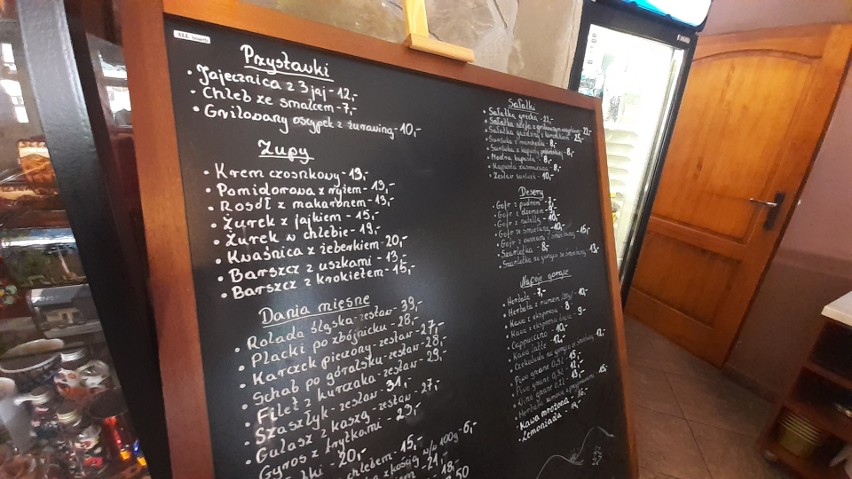 Przystawki
• Jajecznica z 3 jaj - 12,-
• Chleb ze smalcem - 7,-
• Grilowany oscypek z żurawiną - 10,-
Zupy
• Krem czosnkowy - 13,-
• Pomidorowa z ryżem - 13,-
• Rosół z makaronem - 13,-
• Żurek z jajkiem - 15,-
• Żurek w chlebie - 19,-
• Kwaśnica z żeberkiem - 20,-
• Barszcz z uszkami - 13,-
• Barszcz z krokietem - 15,-
Dania mięsne
• Rolada śląska - zestaw - 39,-
• Placki po zbójnicku - 28,-
• Karczek pieczony - zestaw - 27,-
• Schab po góralsku - zestaw - 28,-
• Filet z kurczaka - zestaw - 29,-
• Szaszłyk - zestaw - 31,-
• Gulasz z kaszą - zestaw - 27,-
• Gyros z frytkami - 29,-
20,-
chlebem - 15,-
z kością w/w 100g - 6,-
21,-
18,-
50
Sałatki
• Sałatka grecka - 22,-
• Sałatka
• Sałatka gazdy z
• Surówka z marchewki - 8,-
• Surówka z kapusty pekińskiej - 8,-
• Modra kapusta - 8,-
• Kapusta zasmażana - 8,-
• Zestaw surówek - 10,-
Desery
• Gofr z pudrem - 7,-
• Gofr z dżemem - 9,-
• Gofr z nutellą - 10,-
• Gofr ze śmietaną - 10,-
• Gofr z owocami i śmietaną - 15,-
• Szarlotka - 8,-
• Szarlotka na gorąco ze śmietaną - 13,-
Napoje gorące
• Herbata - 7,-
• Herbata z rumem
• Kawa z ekspresu - 8,-
• Kawa z ekspresu duża - 9,-
• Cappuccino - 10,-
• Kawa latte - 12,-
• Czekolada na gorąco z śmietaną 12,-
• Piwo grzane 0,5l 15,-
• Piwo grzane
• Wino grzane 0,2l - 13,-
• Herbata zimowa z
• Kawa mrożona - 16,-
• Lemoniada -